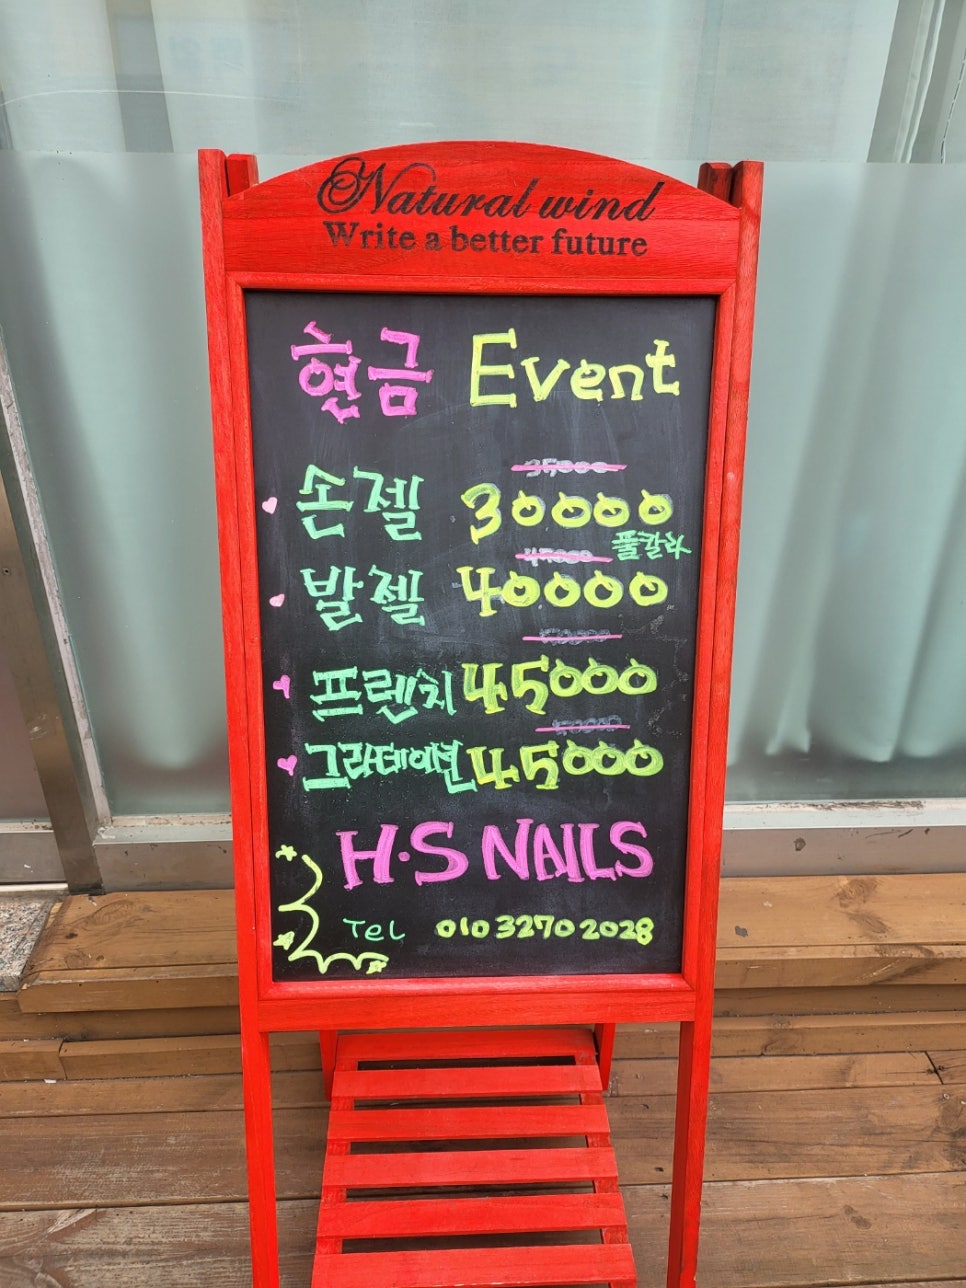 Natural wind
Write a better future
현금 Event
35,000
손젤 30000
풀칼라
45000
발젤 40000
프렌치 45000
그라데이션 45000
H·S NAILS
Tel 010 3270 2028